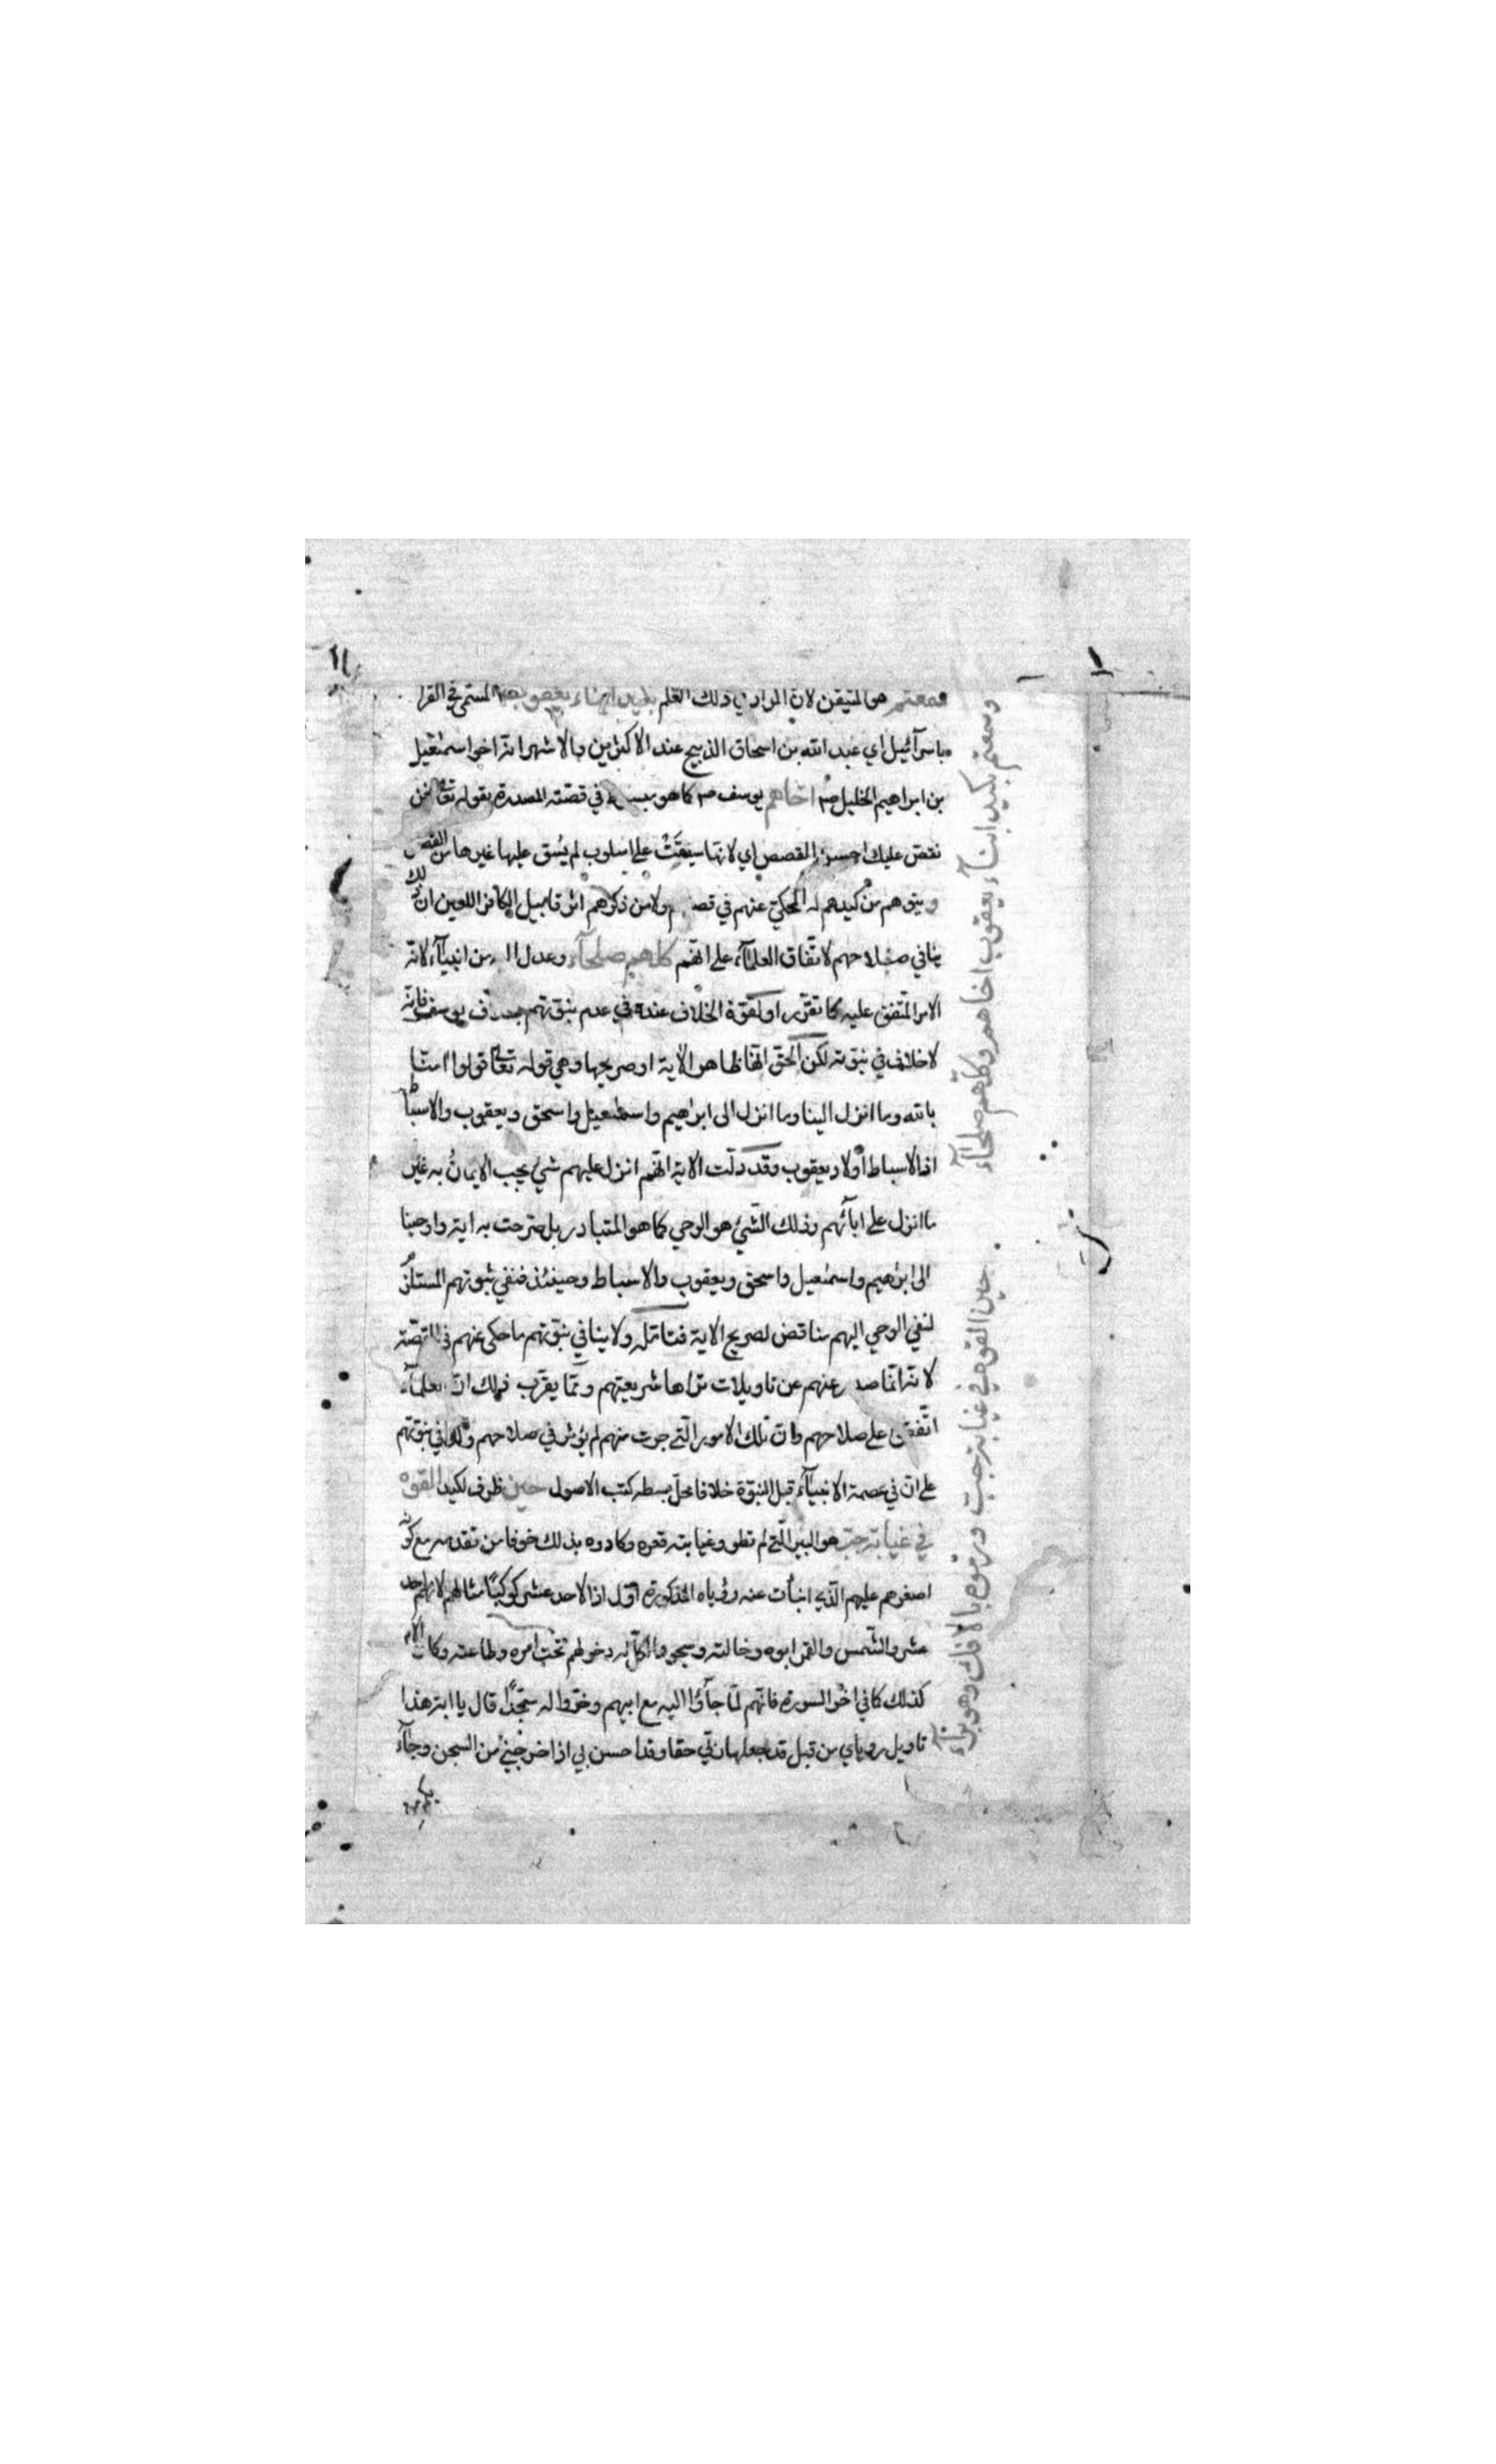 وسمعتم هو المتيقن لان المراد في ذلك العلم بكيد ابناء يعقوب المسمى في القرا
باسرآئيل اي عبد الله بن اسحاق الذبيح عند الاكثرين والاشهر انه اخوه اسمعيل
بن ابراهيم الخليل اخاهم يوسف كما هو في قصته المصدرة بقوله تعا نحن
نقص عليك احسن القصص اي لانها سيقت على اسلوب لم يسق عليها غيرها من القصص
وبنوهم من كيدهم له المحكي عنهم في ولامن ذكرهم اثر قابيل الكافر اللعين ان ذلك
ينافي صلاحهم لاتفاق العلمآء على انهم كلهم صلحآء وعدل من انبيآء لانه
الامر المتفق عليه كما تقرر او لقوة الخلاف عنده في عدم نبوتهم يوسف فانه
لا خلاف في نبوته لكن الحق انها ظاهر الاية او صريحها وهي قوله تعالى قولوا امنا
بالله وما انزل الينا وما انزل الى ابراهيم واسمعيل واسحق ويعقوب والاسباط
اذ الاسباط اولاد يعقوب وقد دلت الاية انهم انزل عليهم شيء يجب الايمان به غير
ما انزل على ابآئهم وذلك الشئ هو الوحي كما هو المتبادر بل صرحت به اية واوحينا
الى ابرهيم واسمعيل واسحق ويعقوب والاسباط وحينئذ فنفي نبوتهم المستلزم
لنفي الوحي اليهم مناقض لصريح الاية فتامله ولا ينافي نبوتهم ما حكى عنهم في القصة
لانه انما صدر عنهم عن تاويلات تراها شريعتهم ومما يقرب ذلك ان العلمآء
اتفقوا على صلاحهم وان تلك الامور التي جرت منهم لم يؤثر في صلاحهم في نبوتهم
على ان في عصمة الانبيآء قبل النبوة خلافا محل بسطه كتب الاصول حين ظرف لكيد القوه
في غيابة جب هو البير التي لم تطو وغيابته قعره وكادوه بذلك خوفا من تقدمه مع كونه
اصغرهم عليهم الذي انبأت عنه رؤياه المذكورة اول اذ الاحد عشر كوكبا مثالهم لانهم احد
عشر والشمس والقمر ابوه وخالته وسجود الكل له دخولهم تحت امره وطاعته وكان الامر
كذلك كما في اخر السورة فانهم لما جآؤا اليه مع ابيهم وخروا له سجدا قال يا ابت هذا
تاويل روياي من قبل قد جعلها ربي حقا وقد احسن بي اذ اخرجني من السجن وجآء
وسمعتم بكيد ابنآء يعقوب اخاهم وكلهم صلحآء
حين القوه في غيابة جب ورموه بالافك وهو براء